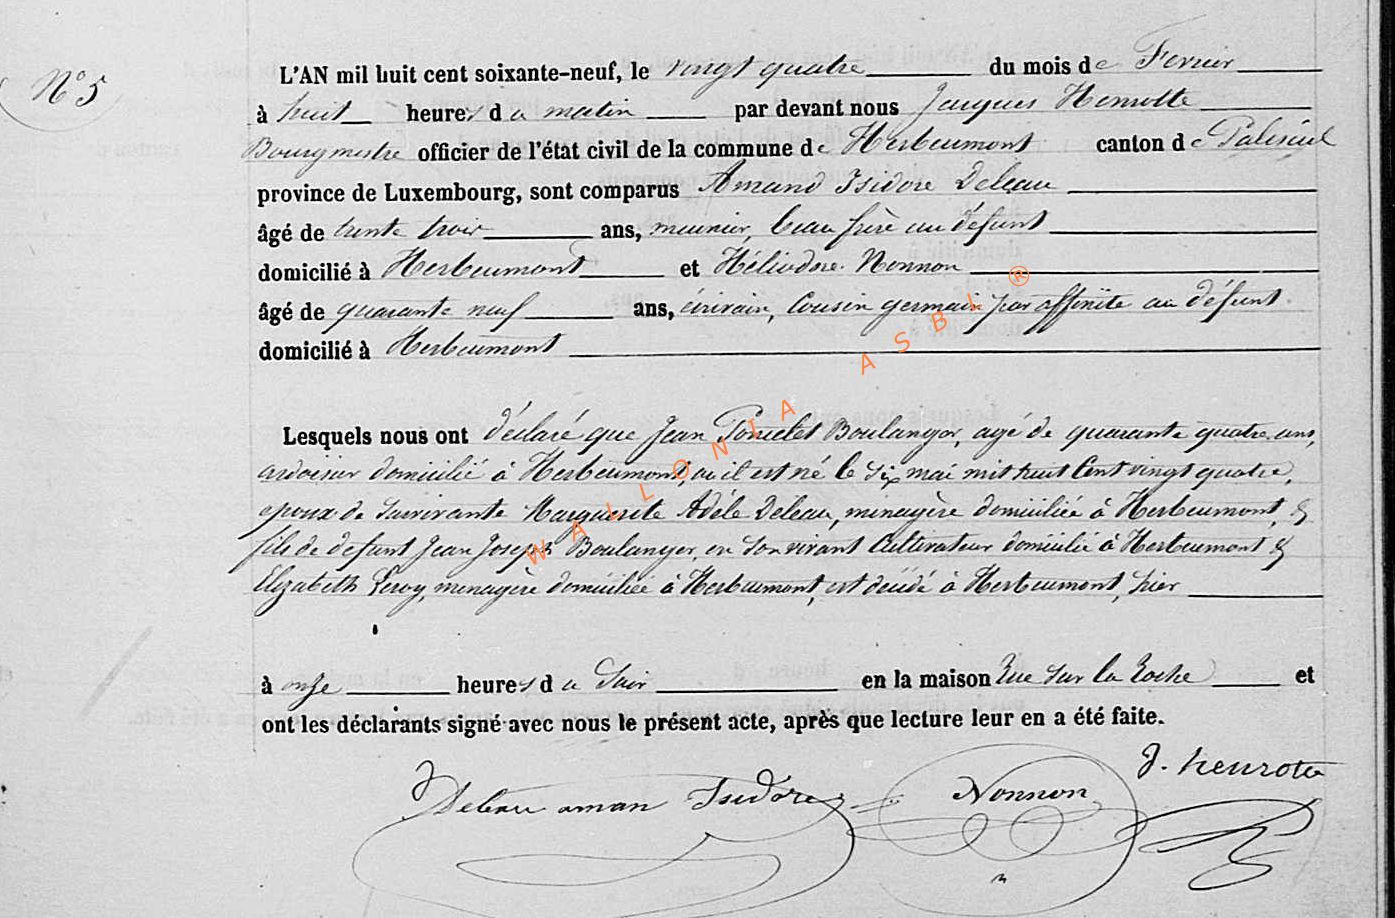 N° 5
L'AN mil huit cent soixante-neuf, le vingt quatre du mois de Fevrier
à huit heures du matin par devant nous Jacques Henrotte
Bourgmestre officier de l'état civil de la commune de Herbeumont canton de Paliseul
province de Luxembourg, sont comparus Amand Isidore Deleau
âgé de trente trois ans, meunier, beau frère au défunt
domicilié à Herbeumont et Héliodore Nonnon
âgé de quarante neuf ans, écrivain, Cousin germain par affinité au défunt
domicilié à Herbeumont
Lesquels nous ont déclaré que Jean Poncelet Boulanger, agé de quarante quatre ans,
ardoisier domicilié à Herbeumont, où il est né le six mai mil huit Cent vingt quatre,
epoux de survivante Marguerite Adèle Deleau, menagère domiciliée à Herbeumont, &
fils de defunt Jean Joseph Boulanger, en son vivant Cultivateur domicilié à Herbeumont &
Elizabeth Leroy, menagère domiciliée à Herbeumont, est décédé à Herbeumont, hier
à onze heures du Soir en la maison Rue sur la Roche et
ont les déclarants signé avec nous le présent acte, après que lecture leur en a été faite.
Deleau aman Isidore Nonnon J. henrotte
WALLONIA ASBL ®